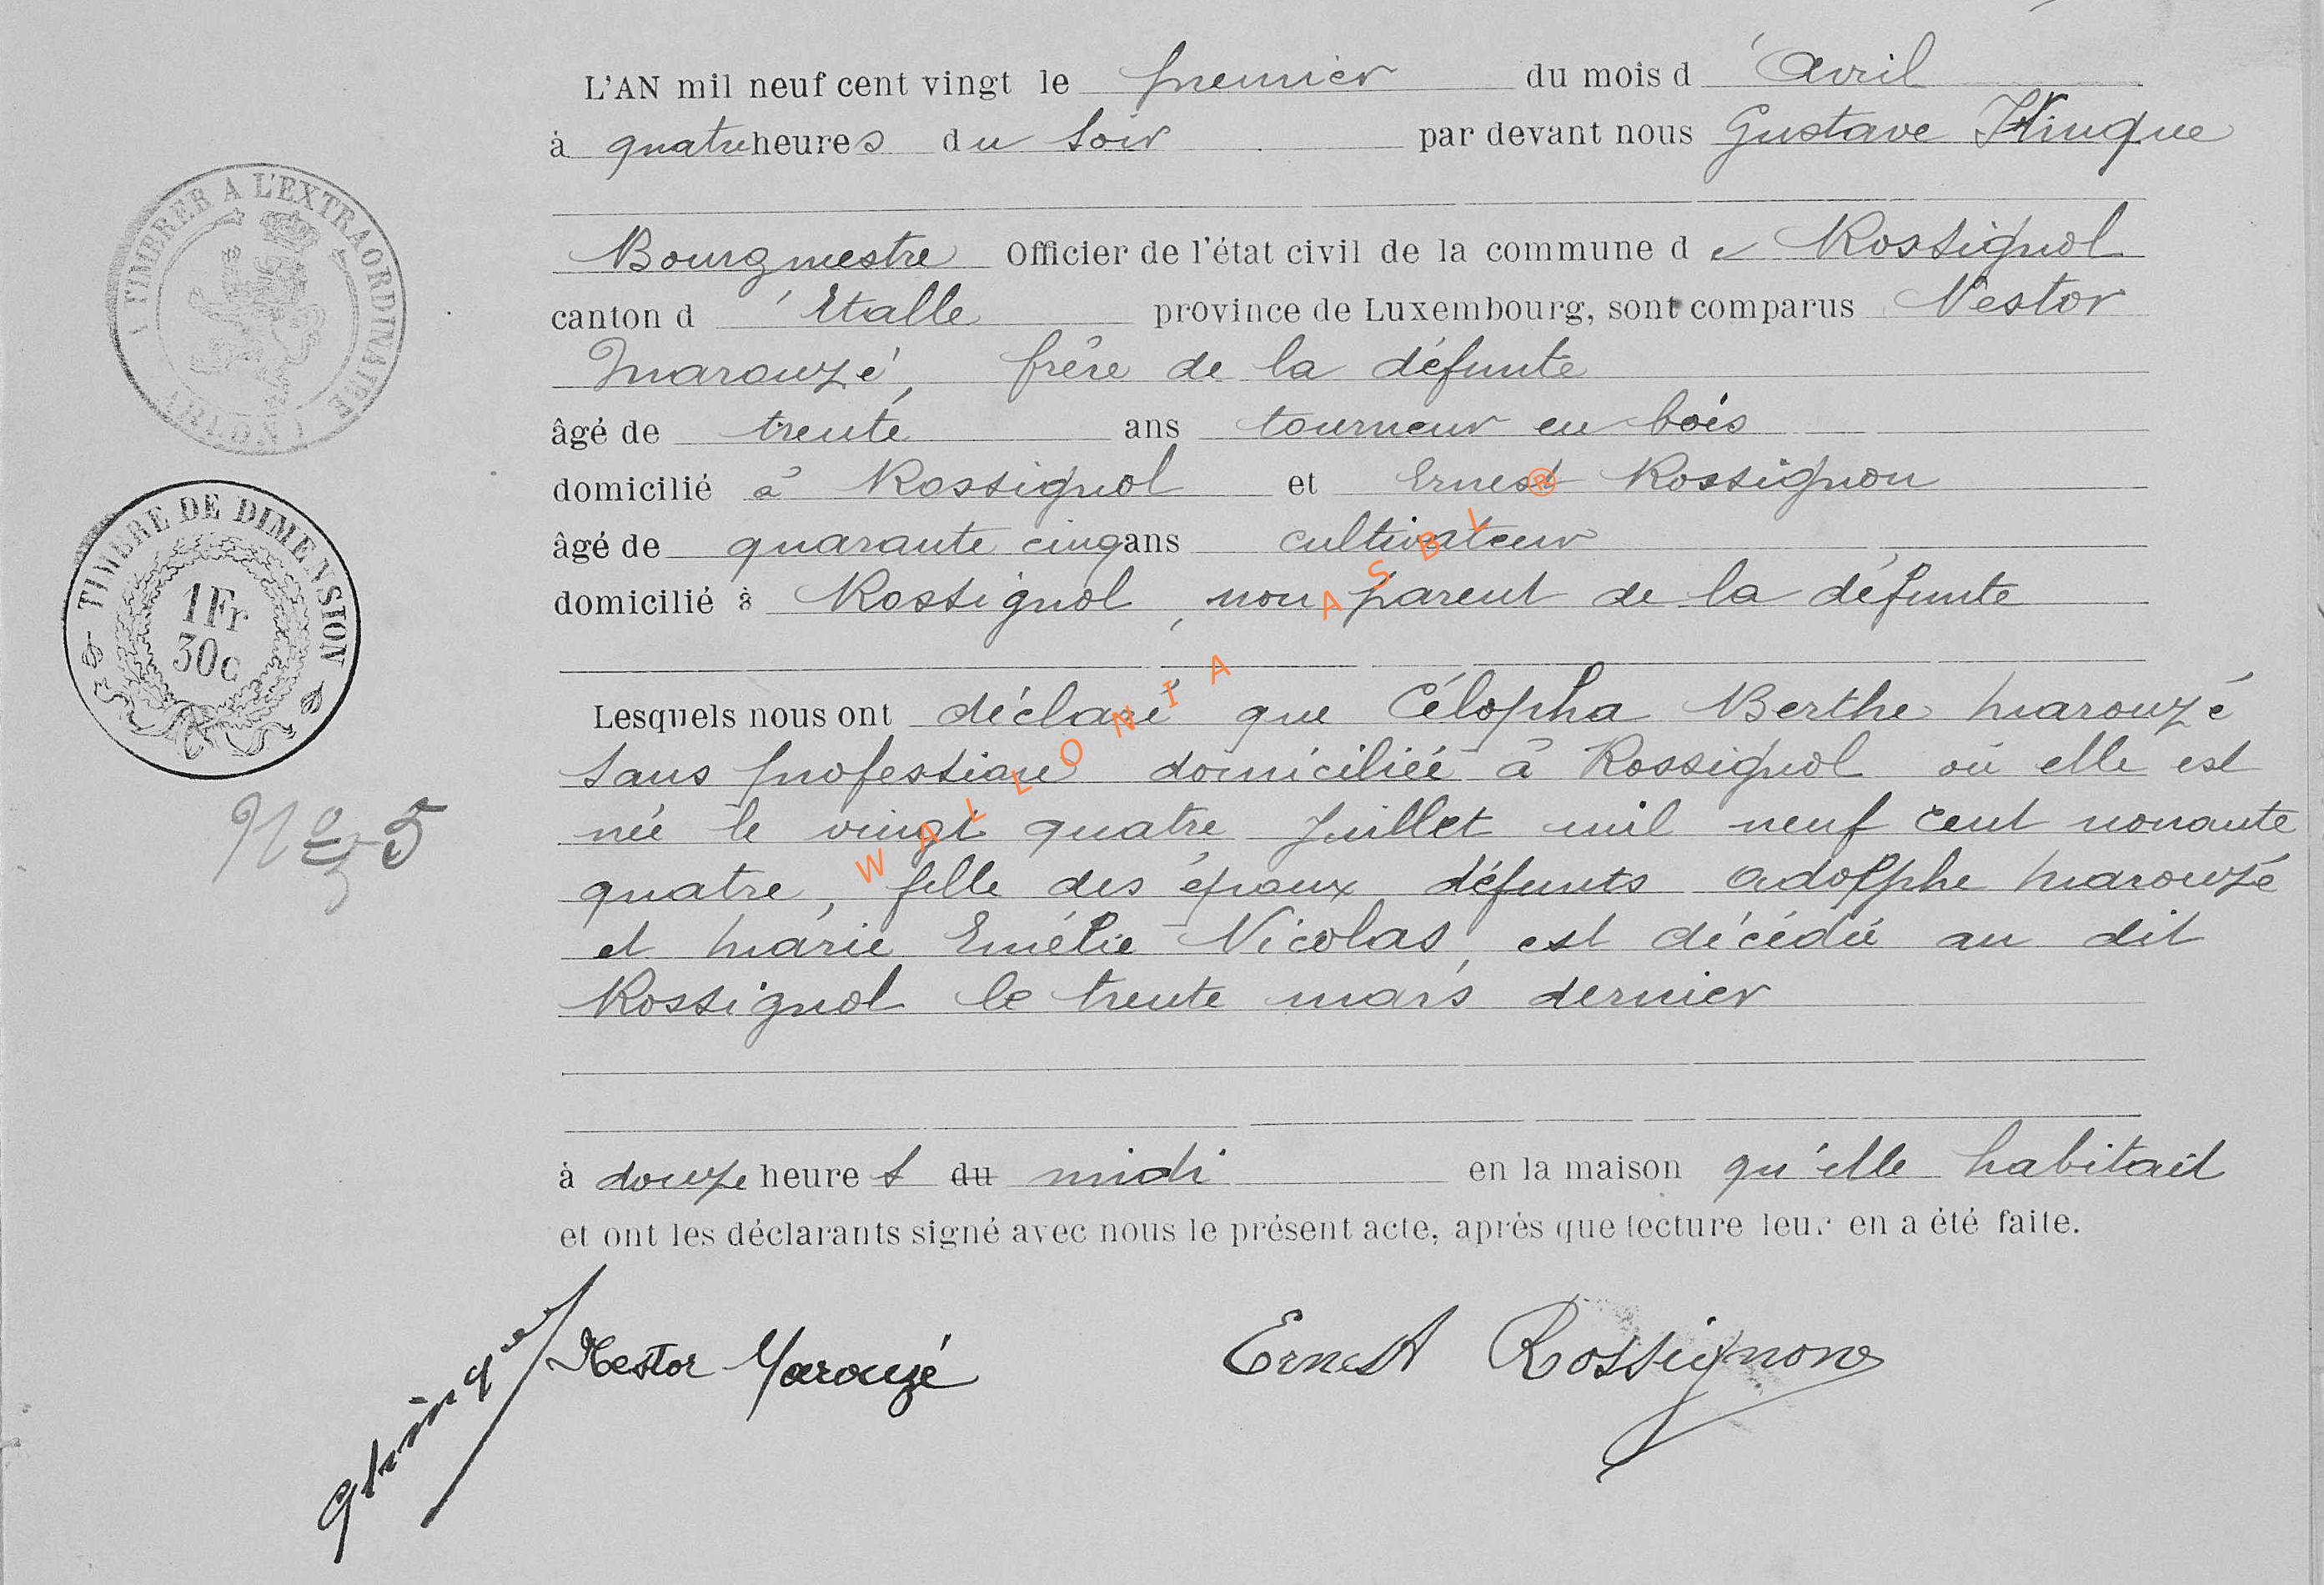 L'AN mil neuf cent vingt le premier du mois d'Avril
à quatre heures du soir par devant nous Gustave Hinque
Bourgmestre Officier de l'état civil de la commune de Rossignol
canton d'Etalle province de Luxembourg, sont comparus Nestor
Marouzé, frère de la défunte
âgé de trente ans tourneur en bois
domicilié à Rossignol et Ernest Rossignon
âgé de quarante cinq ans cultivateur
domicilié à Rossignol, non parent de la défunte
Lesquels nous ont déclaré que Célopha Berthe Marouzé
sans profession domiciliée à Rossignol où elle est
née le vingt quatre Juillet mil neuf cent nonante
quatre, fille des époux défunts Adolphe Marouzé
et Marie Emélie Nicolas, est décédée au dit
Rossignol le trente mars dernier
à douze heures du midi en la maison qu'elle habitait
et ont les déclarants signé avec nous le présent acte, après que lecture leur en a été faite.
Nestor Marouzé Ernest Rossignon
A TIMBRER A L'EXTRAORDINAIRE
(ARLON)
TIMBRE DE DIMENSION
1Fr
30c
N° 5
WALLONIA ASBL ®